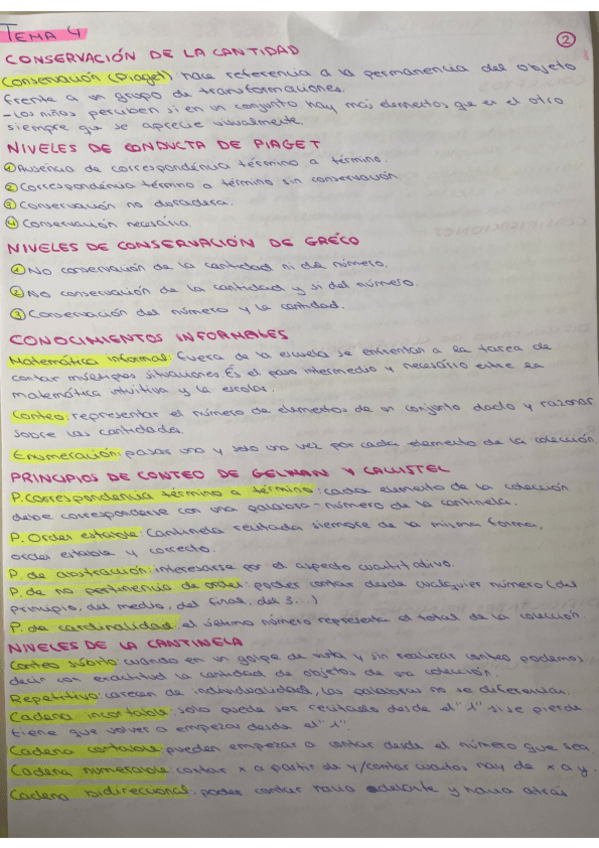 TEMA 4
2
CONSERVACIÓN DE LA CANTIDAD
Conservación (Piaget): hace referencia a la permanencia del objeto
frente a un grupo de transformaciones.
- Los niños perciben si en un conjunto hay más elementos que en el otro
siempre que se aprecie visualmente.
NIVELES DE CONDUCTA DE PIAGET
1 Ausencia de correspondencia término a término.
2 Correspondencia término a término sin conservación.
3 Conservación no duradera.
4 Conservación necesária.
NIVELES DE CONSERVACIÓN DE GRÉCO
1 No conservación de la cantidad ni del número.
2 No conservación de la cantidad y si del número.
3 Conservación del número y la cantidad.
CONOCIMIENTOS INFORMALES
Matemática informal: fuera de la escuela se enfrentan a la tarea de
contar múltiples situaciones. És el paso intermedio y necesário entre la
matemática intuitiva y la escolar.
Conteo: representar el número de elementos de un conjunto dado y razonar
sobre las cantidades.
Enumeración: pasar una y solo una vez por cada elemento de la colección.
PRINCIPIOS DE CONTEO DE GELMAN Y GALLISTEL
P. Correspondencia término a término: cada elemento de la colección
debe corresponderse con una palabra-número de la cantinela.
P. Orden estable: Cantinela recitada siempre de la misma forma,
orden estable y correcto.
P. de abstracción: interesarse por el aspecto cuantitativo.
P. de no pertinencia de orden: poder contar desde cualquier número (del
principio, del medio, del final, del 3...)
P. de cardinalidad: el último número representa el total de la colección.
NIVELES DE LA CANTINELA
Conteo súbito: cuando en un golpe de vista y sin realizar conteo podemos
decir con exactitud la cantidad de objetos de una colección.
Repetitivo: carecen de individualidad, las palabras no se diferencian.
Cadena incortable: solo puede ser recitado desde el "1" si se pierde
tiene que volver a empezar desde el "1".
Cadena cortable: pueden empezar a contar desde el número que sea.
Cadena numerable: contar x a partir de y/contar cuantos hay de x a y.
Cadena bidireccional: poder contar hacia adelante y hacia atrás